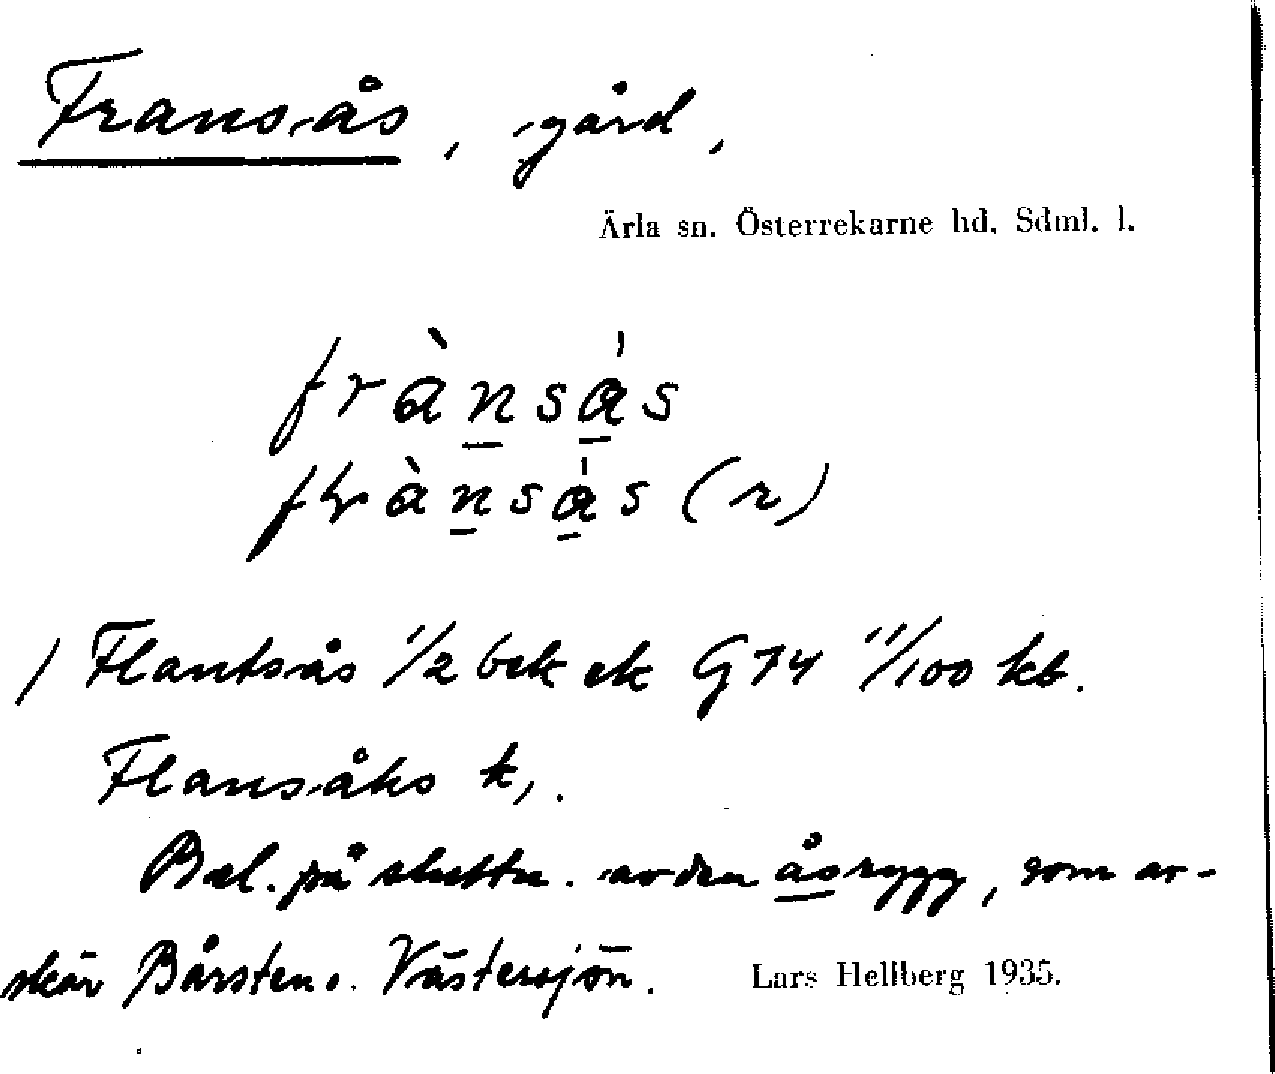 Fransås, gård,
Ärla sn. Österrekarne hd. Sdml. l.
frànsás
frànsás (r)
/ Flantsås 1/2 bek ek G74 11/100 kb.
Flansåhs k,.
Bel. på slutttn. av den åsrygg, som av-
skär Bårsten o. Västersjön. Lars Hellberg 1935.